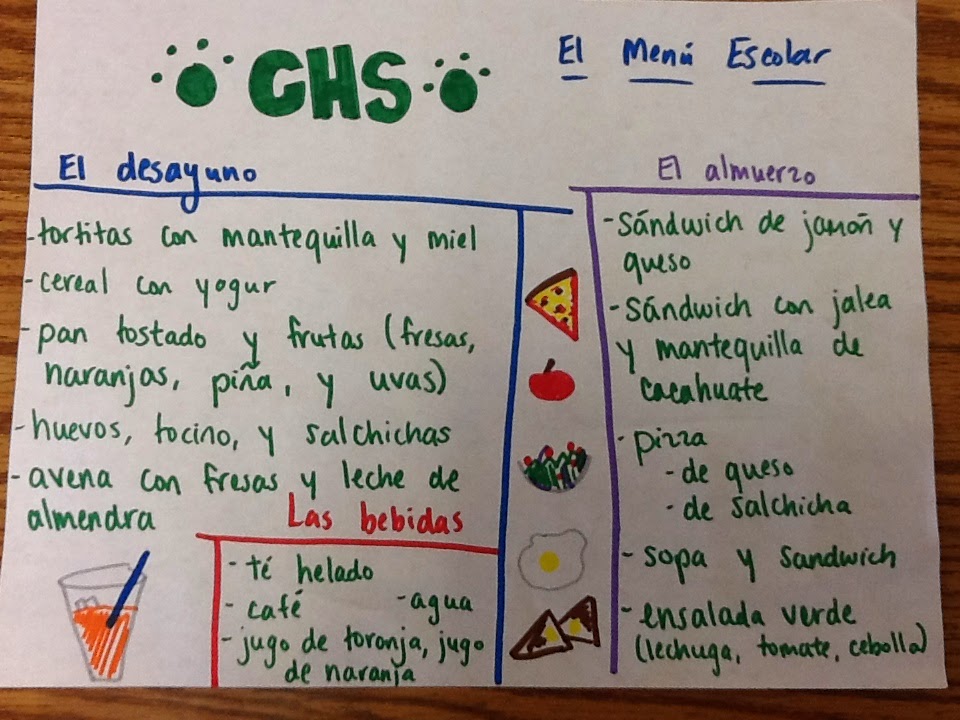 CHS
El Menú Escolar
El desayuno
-tortitas con mantequilla y miel
-cereal con yogur
-pan tostado y frutas (fresas,
naranjas, piña, y uvas)
-huevos, tocino, y salchichas
-avena con fresas y leche de
almendra
Las bebidas
-té helado
-café -agua
-jugo de toronja, jugo
de naranja
El almuerzo
-sándwich de jamón y
queso
-sándwich con jalea
y mantequilla de
cacahuate
-pizza
-de queso
-de salchicha
-sopa y sandwich
-ensalada verde
(lechuga, tomate, cebolla)